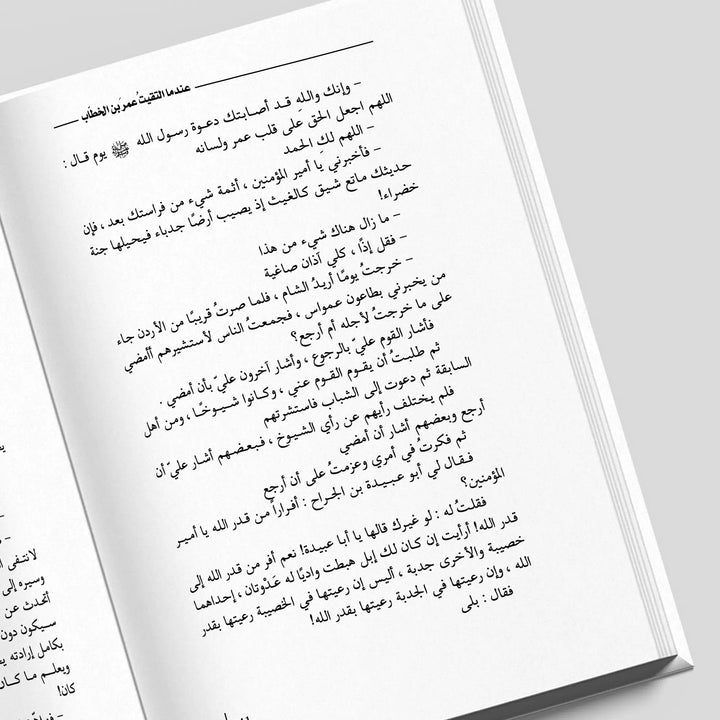 عندما التقيتُ عمرَ بن الخطاب
- وإنك والله قد أصابتك دعوة رسول الله ﷺ يوم قال :
اللهم اجعل الحق على قلب عمر ولسانه
- اللهم لك الحمد
- فأخبرني يا أمير المؤمنين ، أثمة شيء من فراستك بعد ، فإن
حديثك ماتع شيق كالغيث إذ يصيب أرضًا جدباء فيحيلها جنة
خضراء!
- ما زال هناك شيء من هذا
- فقل إذًا ، كلي آذان صاغية
- خرجتُ يومًا أريدُ الشام ، فلما صرتُ قريبًا من الأردن جاء
من يخبرني بطاعون عمواس ، فجمعتُ الناس لأستشيرهم أأمضي
على ما خرجتُ لأجله أم أرجع؟
فأشار القوم عليّ بالرجوع ، وأشار آخرون عليّ بأن أمضي .
ثم طلبتُ أن يقوم القوم عني ، وكانوا شيوخًا ، ومن أهل
السابقة ثم دعوت إلى الشباب فاستشرتهم
فلم يختلف رأيهم عن رأي الشيوخ ، فبعضهم أشار عليّ أن
أرجع وبعضهم أشار أن أمضي
ثم فكرتُ في أمري وعزمتُ على أن أرجع
فقال لي أبو عبيدة بن الجراح : أفراراً من قدر الله يا أمير
المؤمنين؟
فقلتُ له : لو غيرك قالها يا أبا عبيدة! نعم أفر من قدر الله إلى
قدر الله! أرأيت إن كان لك إبل هبطت واديًا له عَدْوتان ، إحداهما
خصيبة والأخرى جدبة ، أليس إن رعيتها في الخصيبة رعيتها بقدر
الله ، وإن رعيتها في الجدبة رعيتها بقدر الله!
فقال : بلى
لانتفى
وسيره إلى
أتحدث عن
سيكون دون
بكامل إرادته
ويعلم ما كان
كان!